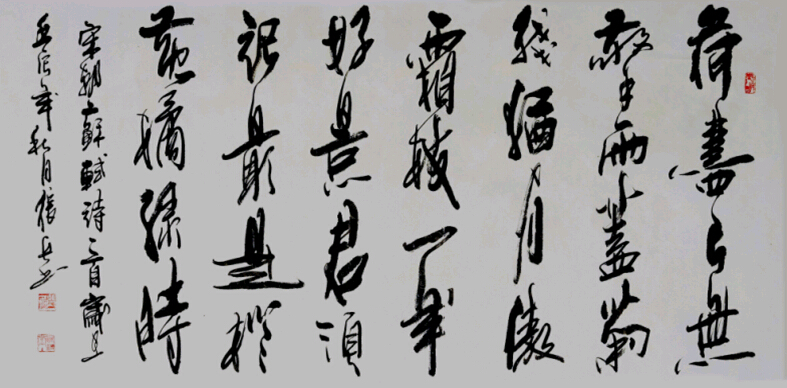 荷盡已無
擎雨蓋菊
殘猶有傲
霜枝一年
好景君須
記最是橙
黄橘綠時
宋朝蘇軾詩一首歲在
壬辰年秋月